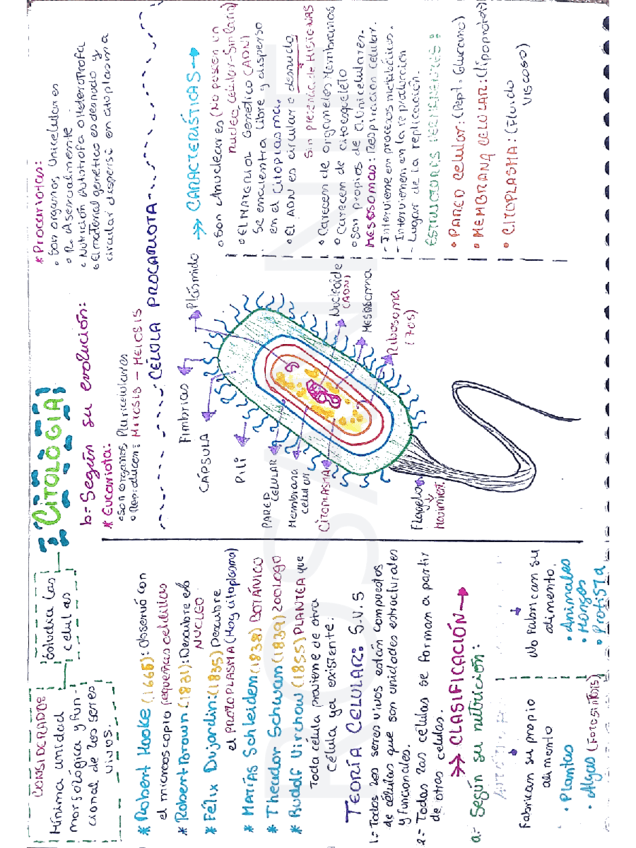 CITOLOGIA
Estudia las
células
CONSIDERADOS
Mínima unidad
morfológica y fun-
cional de los seres
vivos.
* Robert Hooke (1665): Observó con
el microscopio pequeñas celdillas
* Robert Brown (1831): Descubre el
NUCLEO
* Félix Dujardin: (1835) Descubre
el PROTOPLASMA (Hoy citoplasma)
* MATÍAS Schleidem (1838) BOTÁNICO
* Theodor Schwan (1839) zoologo
* Rudolf Virchow (1855) PLANTEA que
Toda célula proviene de otra
célula ya existente.
TEORÍA CELULAR: S.V.S
1.- Todos los seres vivos están compuestos
de células que son unidades estructurales
y funcionales.
2.- Todas las células se forman a partir
de otras células.
→→ CLASIFICACIÓN →
a.- Según su nutrición:
Fabrican su propio
alimento
• Plantas
• Algas (FOTOSÍNTESIS)
No fabrican su
alimento.
• Animales
• Hongos
• Protista
b.- Según su evolución:
* Eucariota:
• Son organos Pluricelulares
• Reproducen: MITOSIS - MEIOSIS
* Procariotas:
• Son organos, Unicelulares
• R. Asexualmente
• Nutrición autótrofa o Heterotrofa
• El material genético es desnudo y
circular dispersi en citoplasma
CÉLULA PROCARIOTA
Fimbrias
Plásmido
CAPSULA
Pili
PARED
CELULAR
Membrana
celular
CITOPLASMA
Flagelo
Movimior.
Nucleoide
(ADN)
Mesosoma
Ribosoma
(70s)
→→ CARACTERÍSTICAS →
• Son Anucleares (No poseen un
nucleo celular - Sin Carin)
• El Material Genético (ADN)
Se encuentra Libre y disperso
en el Citoplasma.
• El ADN es circular o desnudo
Sin presencia de HISTONAS
• Carecem de organelos Membranosos
• Carecem de citoesqueleto
• Son propios de C. Unicelulares.
mesosomas: Respiración celular.
- Interviene em procesos metabólicos.
- Intervienem en la reproduccion
- Lugar de la replicación.
ESTRUCTURAS
• PARED celular: (Pepti. Glucano)
• MEMBRANA CELULAR: (Lipoproteica)
• CITOPLASMA: (Fluido
viscoso)